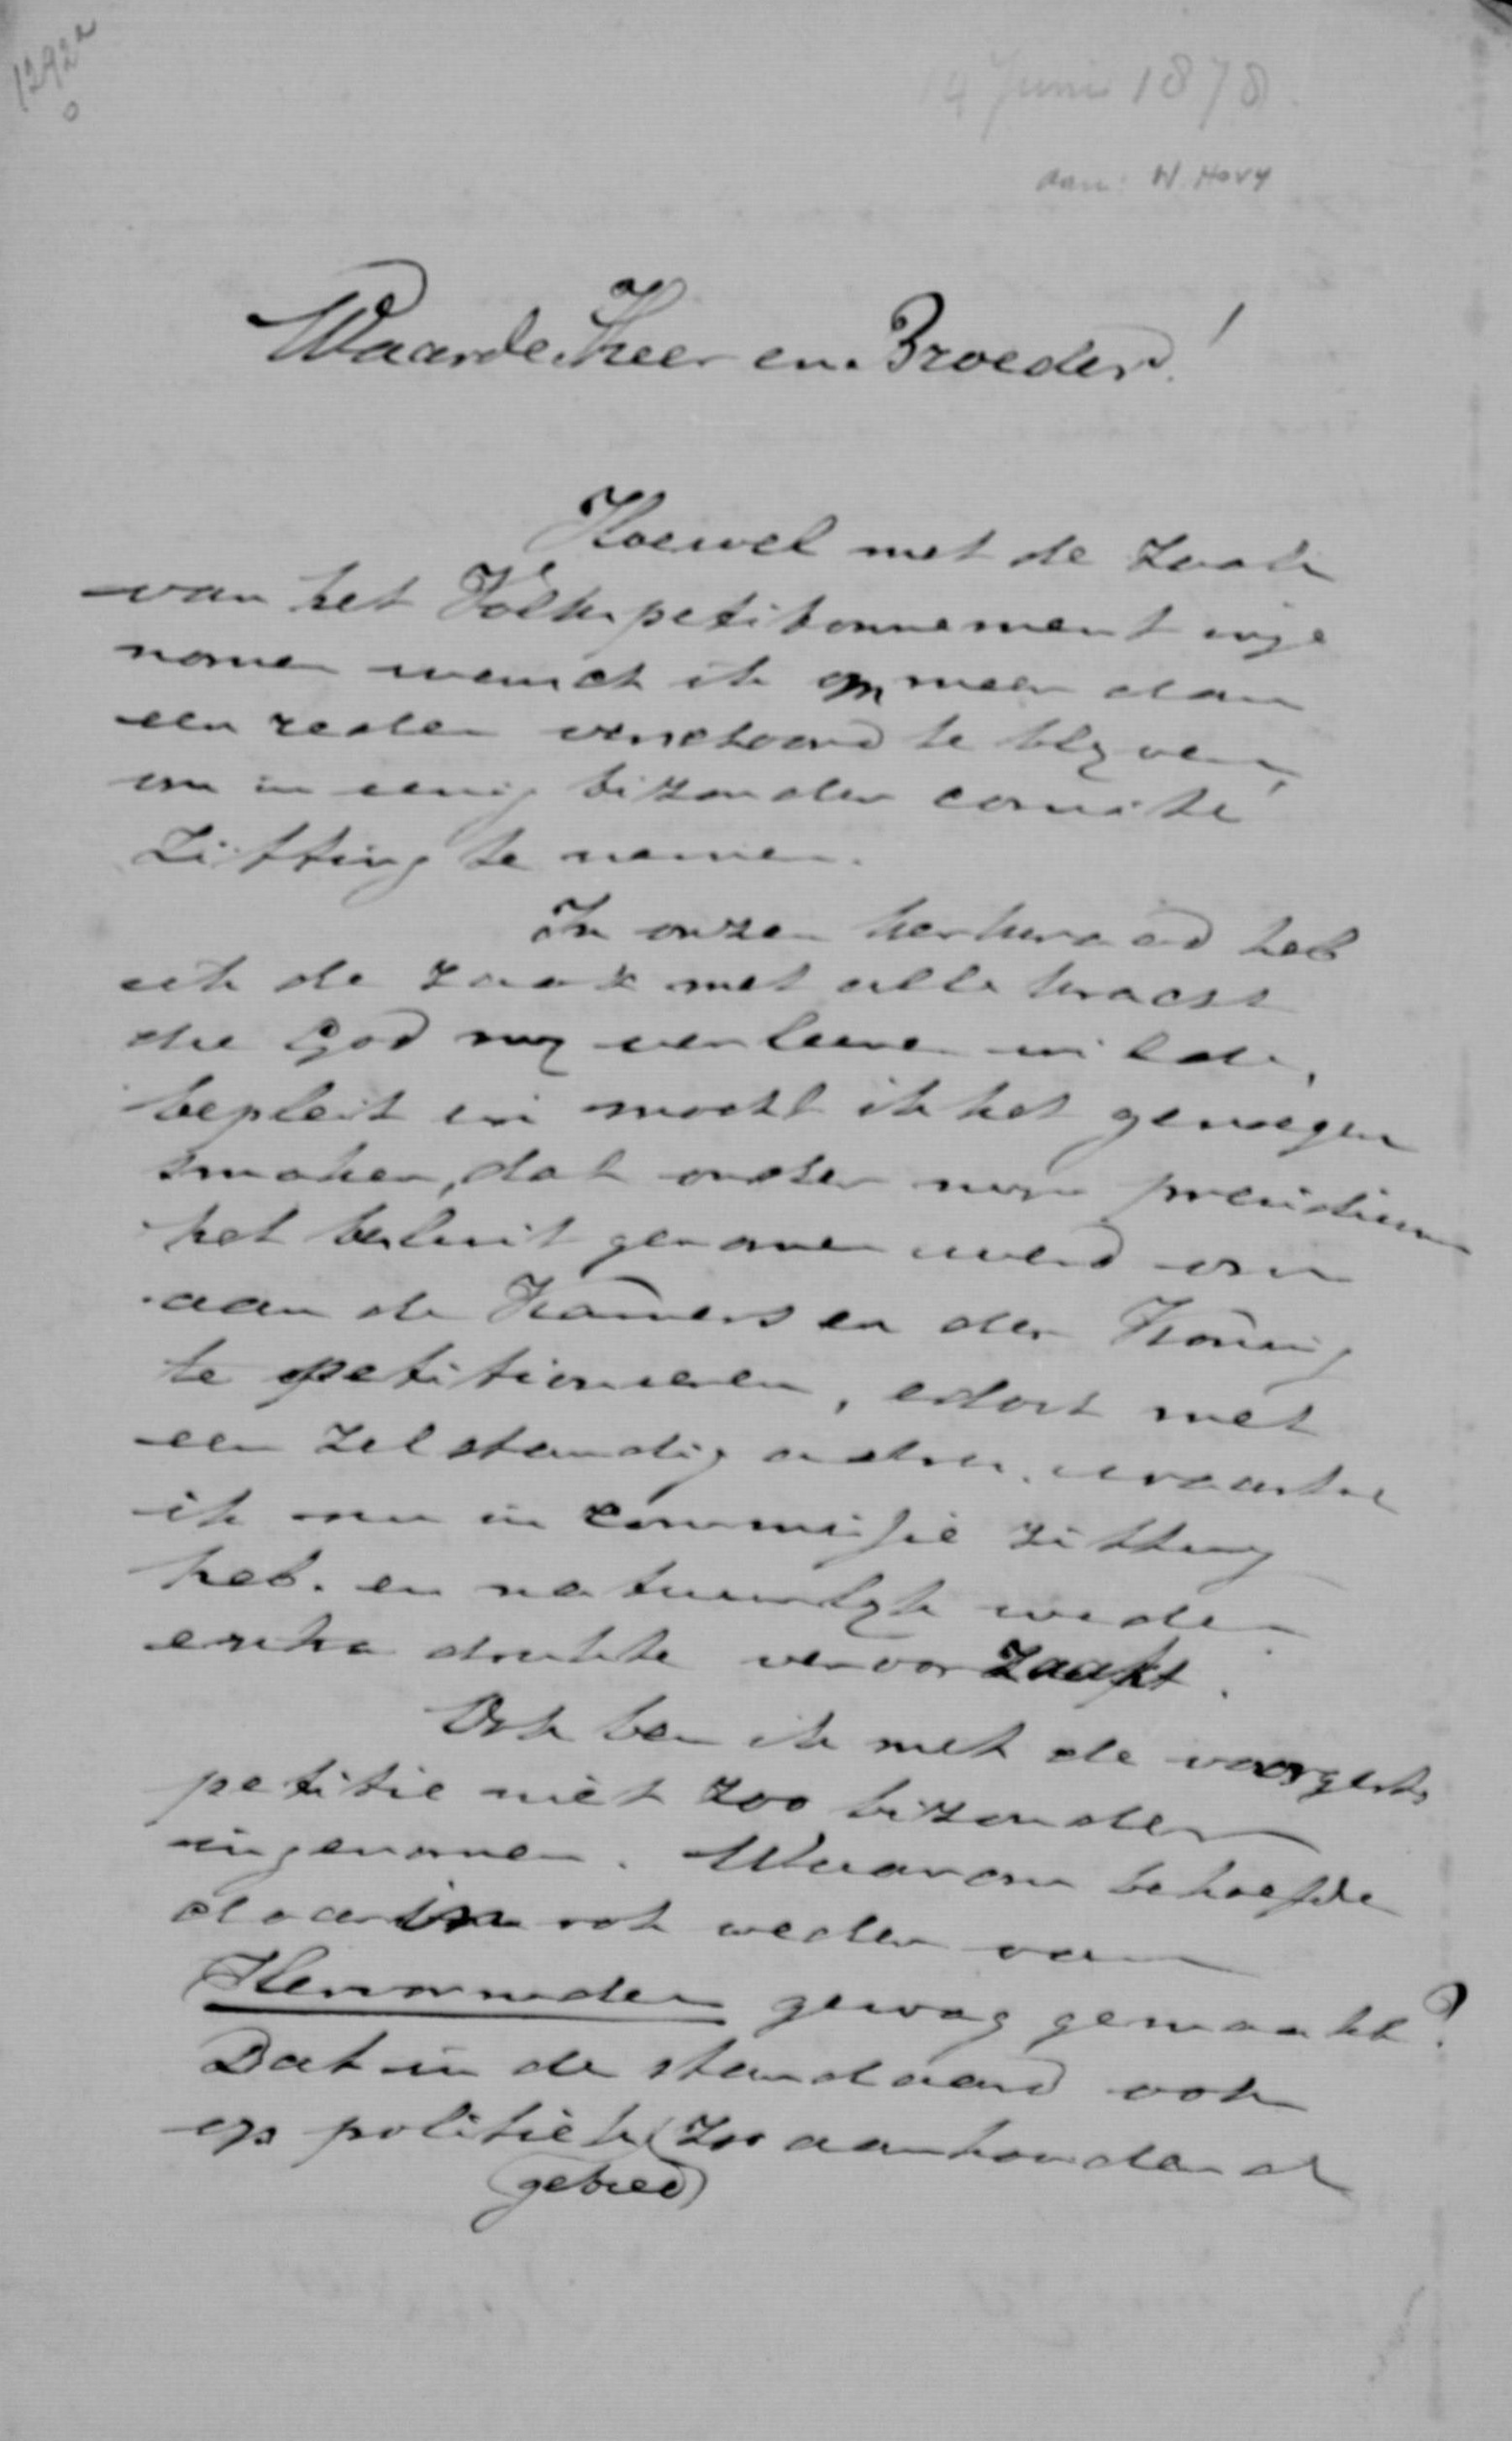 1292a
0
14 Juni 1878.
aan: W. Hovy
Waarde Heer en Broeder!
Hoewel met de zaak
van het Volkspetitonnement inge
nomen wensch ik om meer dan
een reden verschoond te blyven,
om in eenig bizonder comité
zitting te nemen.
In onzen kerkeraad heb
ik de zaak met alle kracht
die God my verleenen wilde,
bepleit en mocht ik het genoegen
smaken, dat onder myn presidium
het besluit genomen werd om
aan de Kamers en den Koning
te petitioneeren, edoch met
een zelstandig adres, waartoe
ik nu in commissie zitting
heb. en natuurlyk weder
extra drukte veroorzaakt.
Ook ben ik met de voorgest.
petitie niet zoo bizonder
ingenomen. Waarom behoefde
daarin ook weder van
Hervormden gewag gemaakt?
Dat in de standaard ook
op politiek (zoo aanhoudend
(gebied)